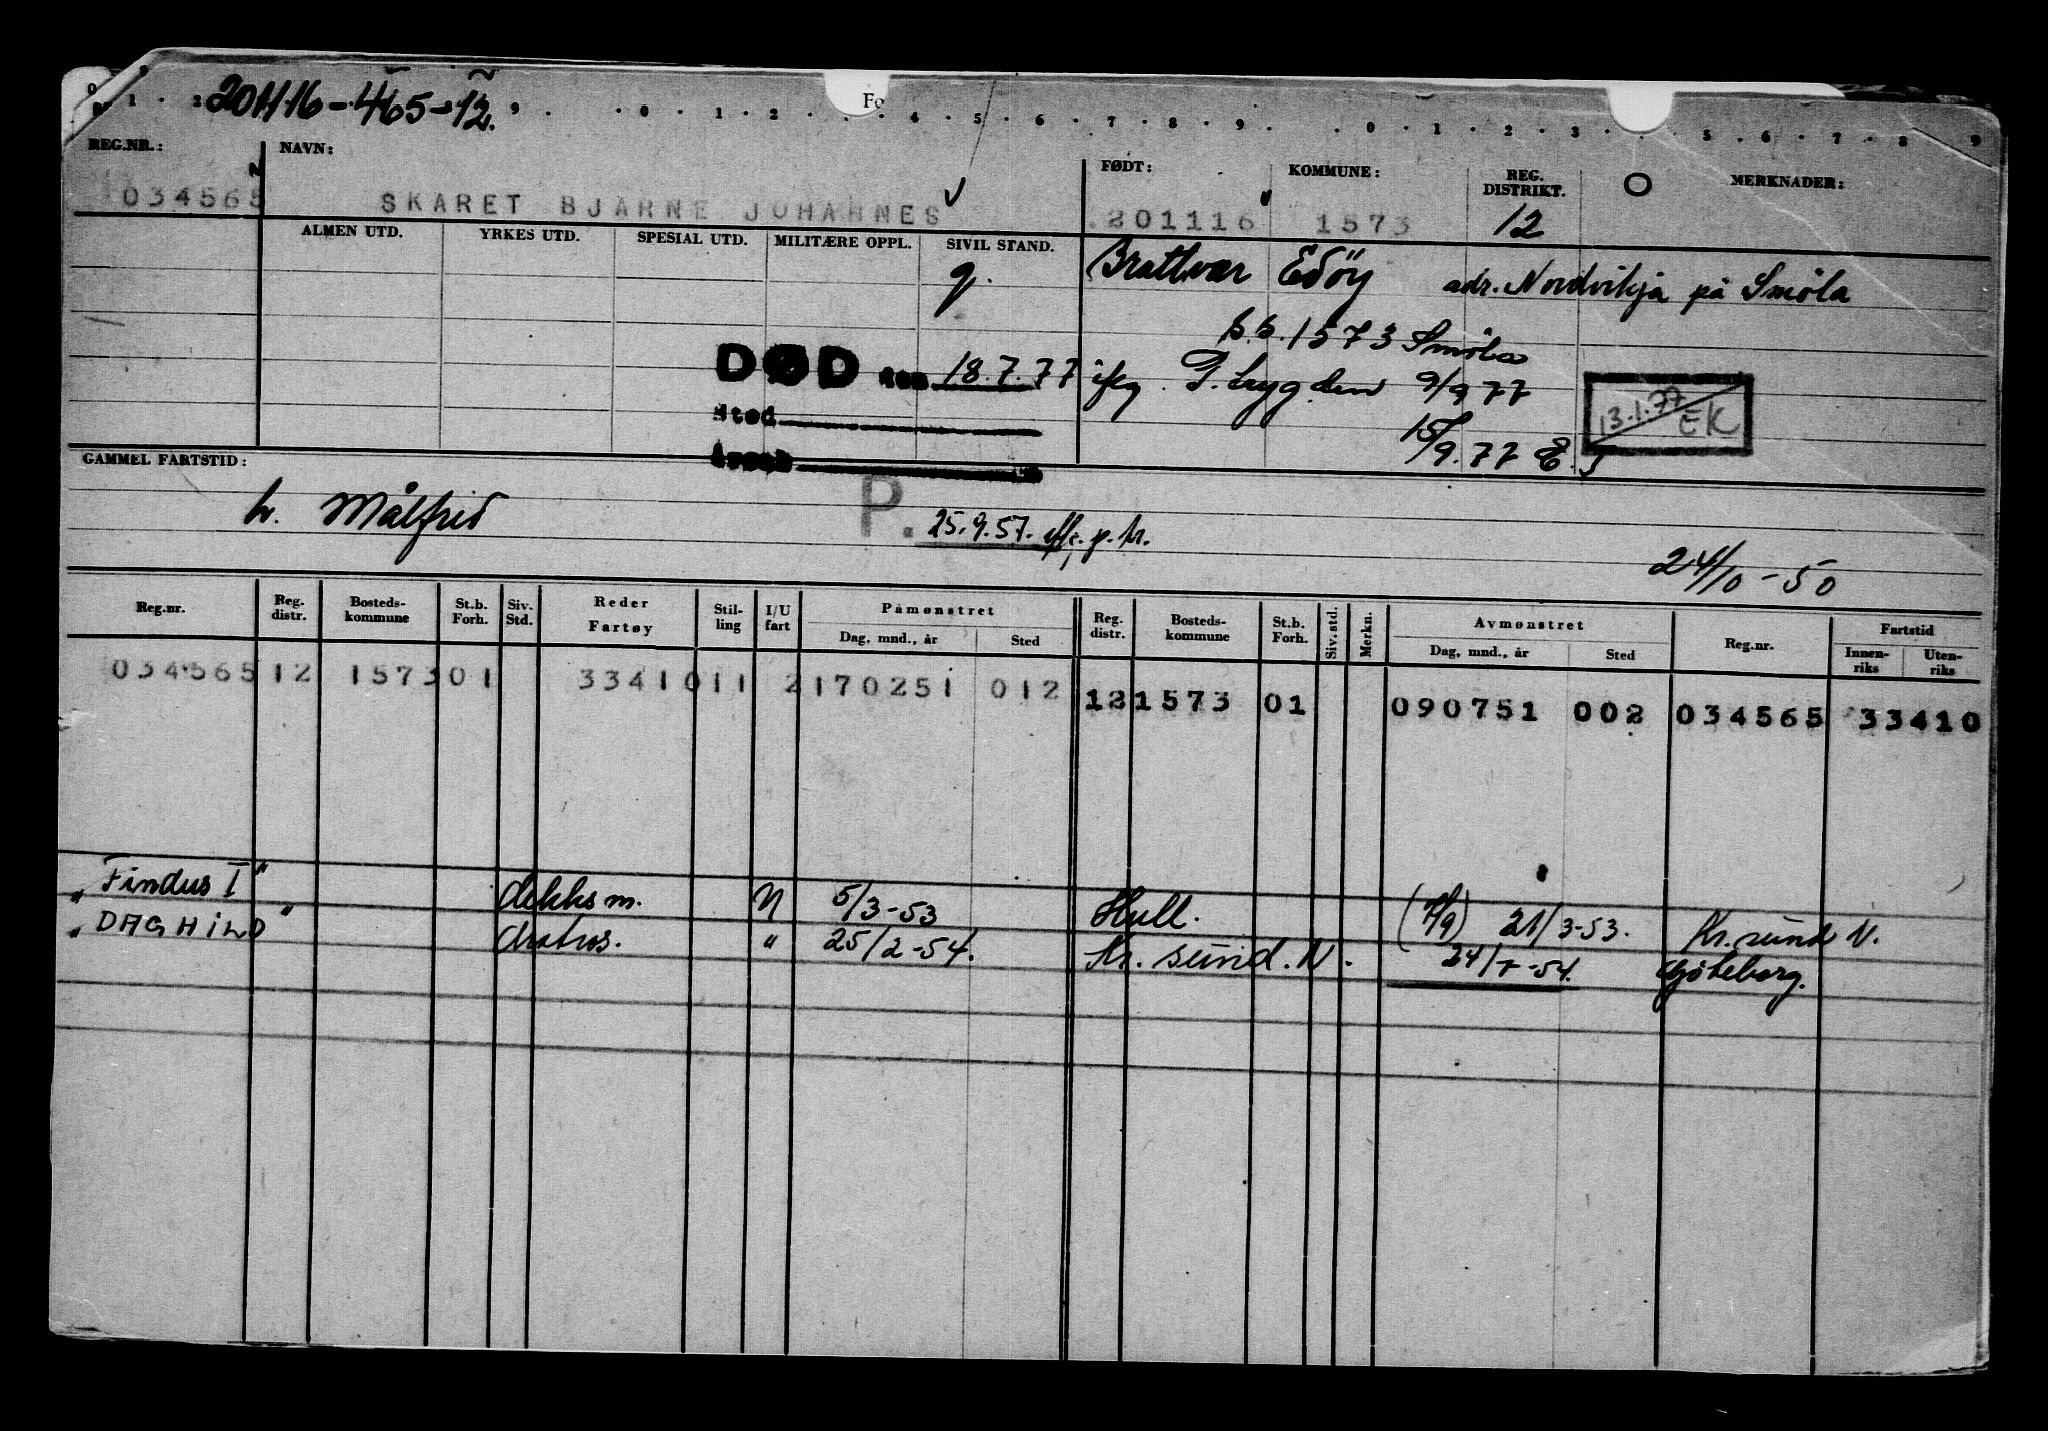 201116-465-12.
Fo
REG.NR.: NAVN: FØDT: KOMMUNE: REG. DISTRIKT. O MERKNADER:
034565 SKARET BJARNE JOHANNES 201116 1573 12
ALMEN UTD. YRKES UTD. SPESIAL UTD. MILITÆRE OPPL. SIVIL STAND.
g. Brattvær Edöy adr. Nordvikja på Smöla
b.b. 1573 Smöla
DØD den 18.7.77 iflg. P. trygden 9/9 77
Sted
Årsak
13.1.77 EK
15/9.77 E.S
GAMMEL FARTSTID:
h. Målfrid P. 25.9.57. efl. p. tr.
24/10-50
Reg.nr. Reg. distr. Bosteds-kommune St.b. Forh. Siv. Std. Reder Fartøy Stil-ling I/U fart Påmønstret Dag, mnd., år Sted Reg. distr. Bosteds-kommune St.b. Forh. Siv. std. Merkn. Avmønstret Dag, mnd., år Sted Reg.nr. Fartstid Innen-riks Uten-riks
034565 12 1573 01 33410 11 2 170251 012 12 1573 01 090751 002 034565 33410
"Findus I" dekksm. N 5/3-53 Hull. (7/9) 21/3-53. Kr.sund N.
"DAGHILD" Matros. " 25/2-54. Kr. sund. N. 24/7-54. Göteborg.